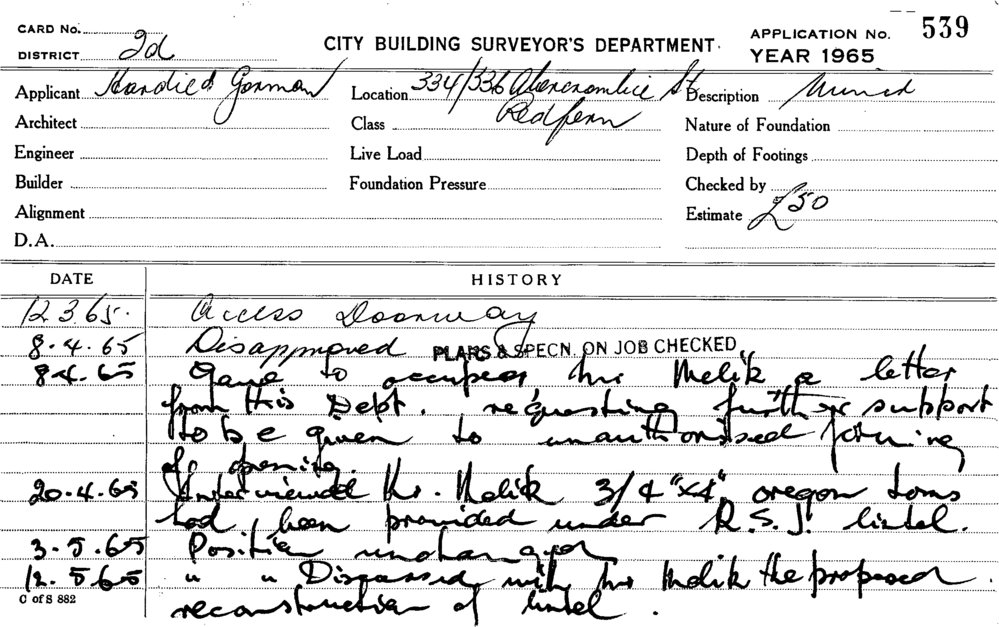 CARD No.
539
DISTRICT 2d
CITY BUILDING SURVEYOR'S DEPARTMENT.
APPLICATION No.
YEAR 1965
Applicant Gorman
Location 334/336 Abercrombie St
Redfern
Description
Architect
Class
Nature of Foundation
Engineer
Live Load
Depth of Footings
Builder
Foundation Pressure
Checked by
Alignment
Estimate £50
D.A.
DATE
HISTORY
12.3.65. Access Doorway
8.4.65 Disapproved PLANS & SPECN. ON JOB CHECKED
8.4.65 Gave to occupier Mr Melik a letter
from this Dept. requesting further support
to be given to unauthorised forming
of opening.
20.4.65 Interviewed Mr. Melik 3/4"x4" oregon
had been provided under R.S.J. lintel.
3.5.65 Position unchanged
12.5.65 " " Discussed with Mr Melik the proposed
reconstruction of lintel.
C of S 882